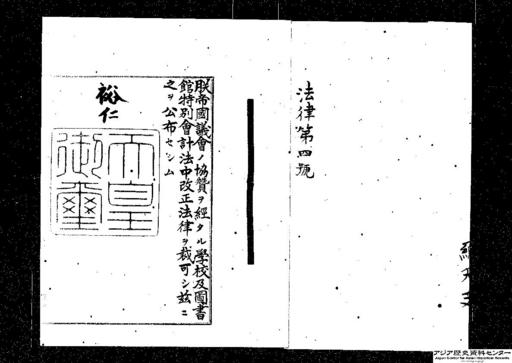 法律第四號
朕帝國議會ノ協贊ヲ經タル學校及圖書
館特別會計法中改正法律ヲ裁可シ茲ニ
之ヲ公布セシム
裕仁
天皇
御璽
アジア歴史資料センター
Japan Center for Asian Historical Records